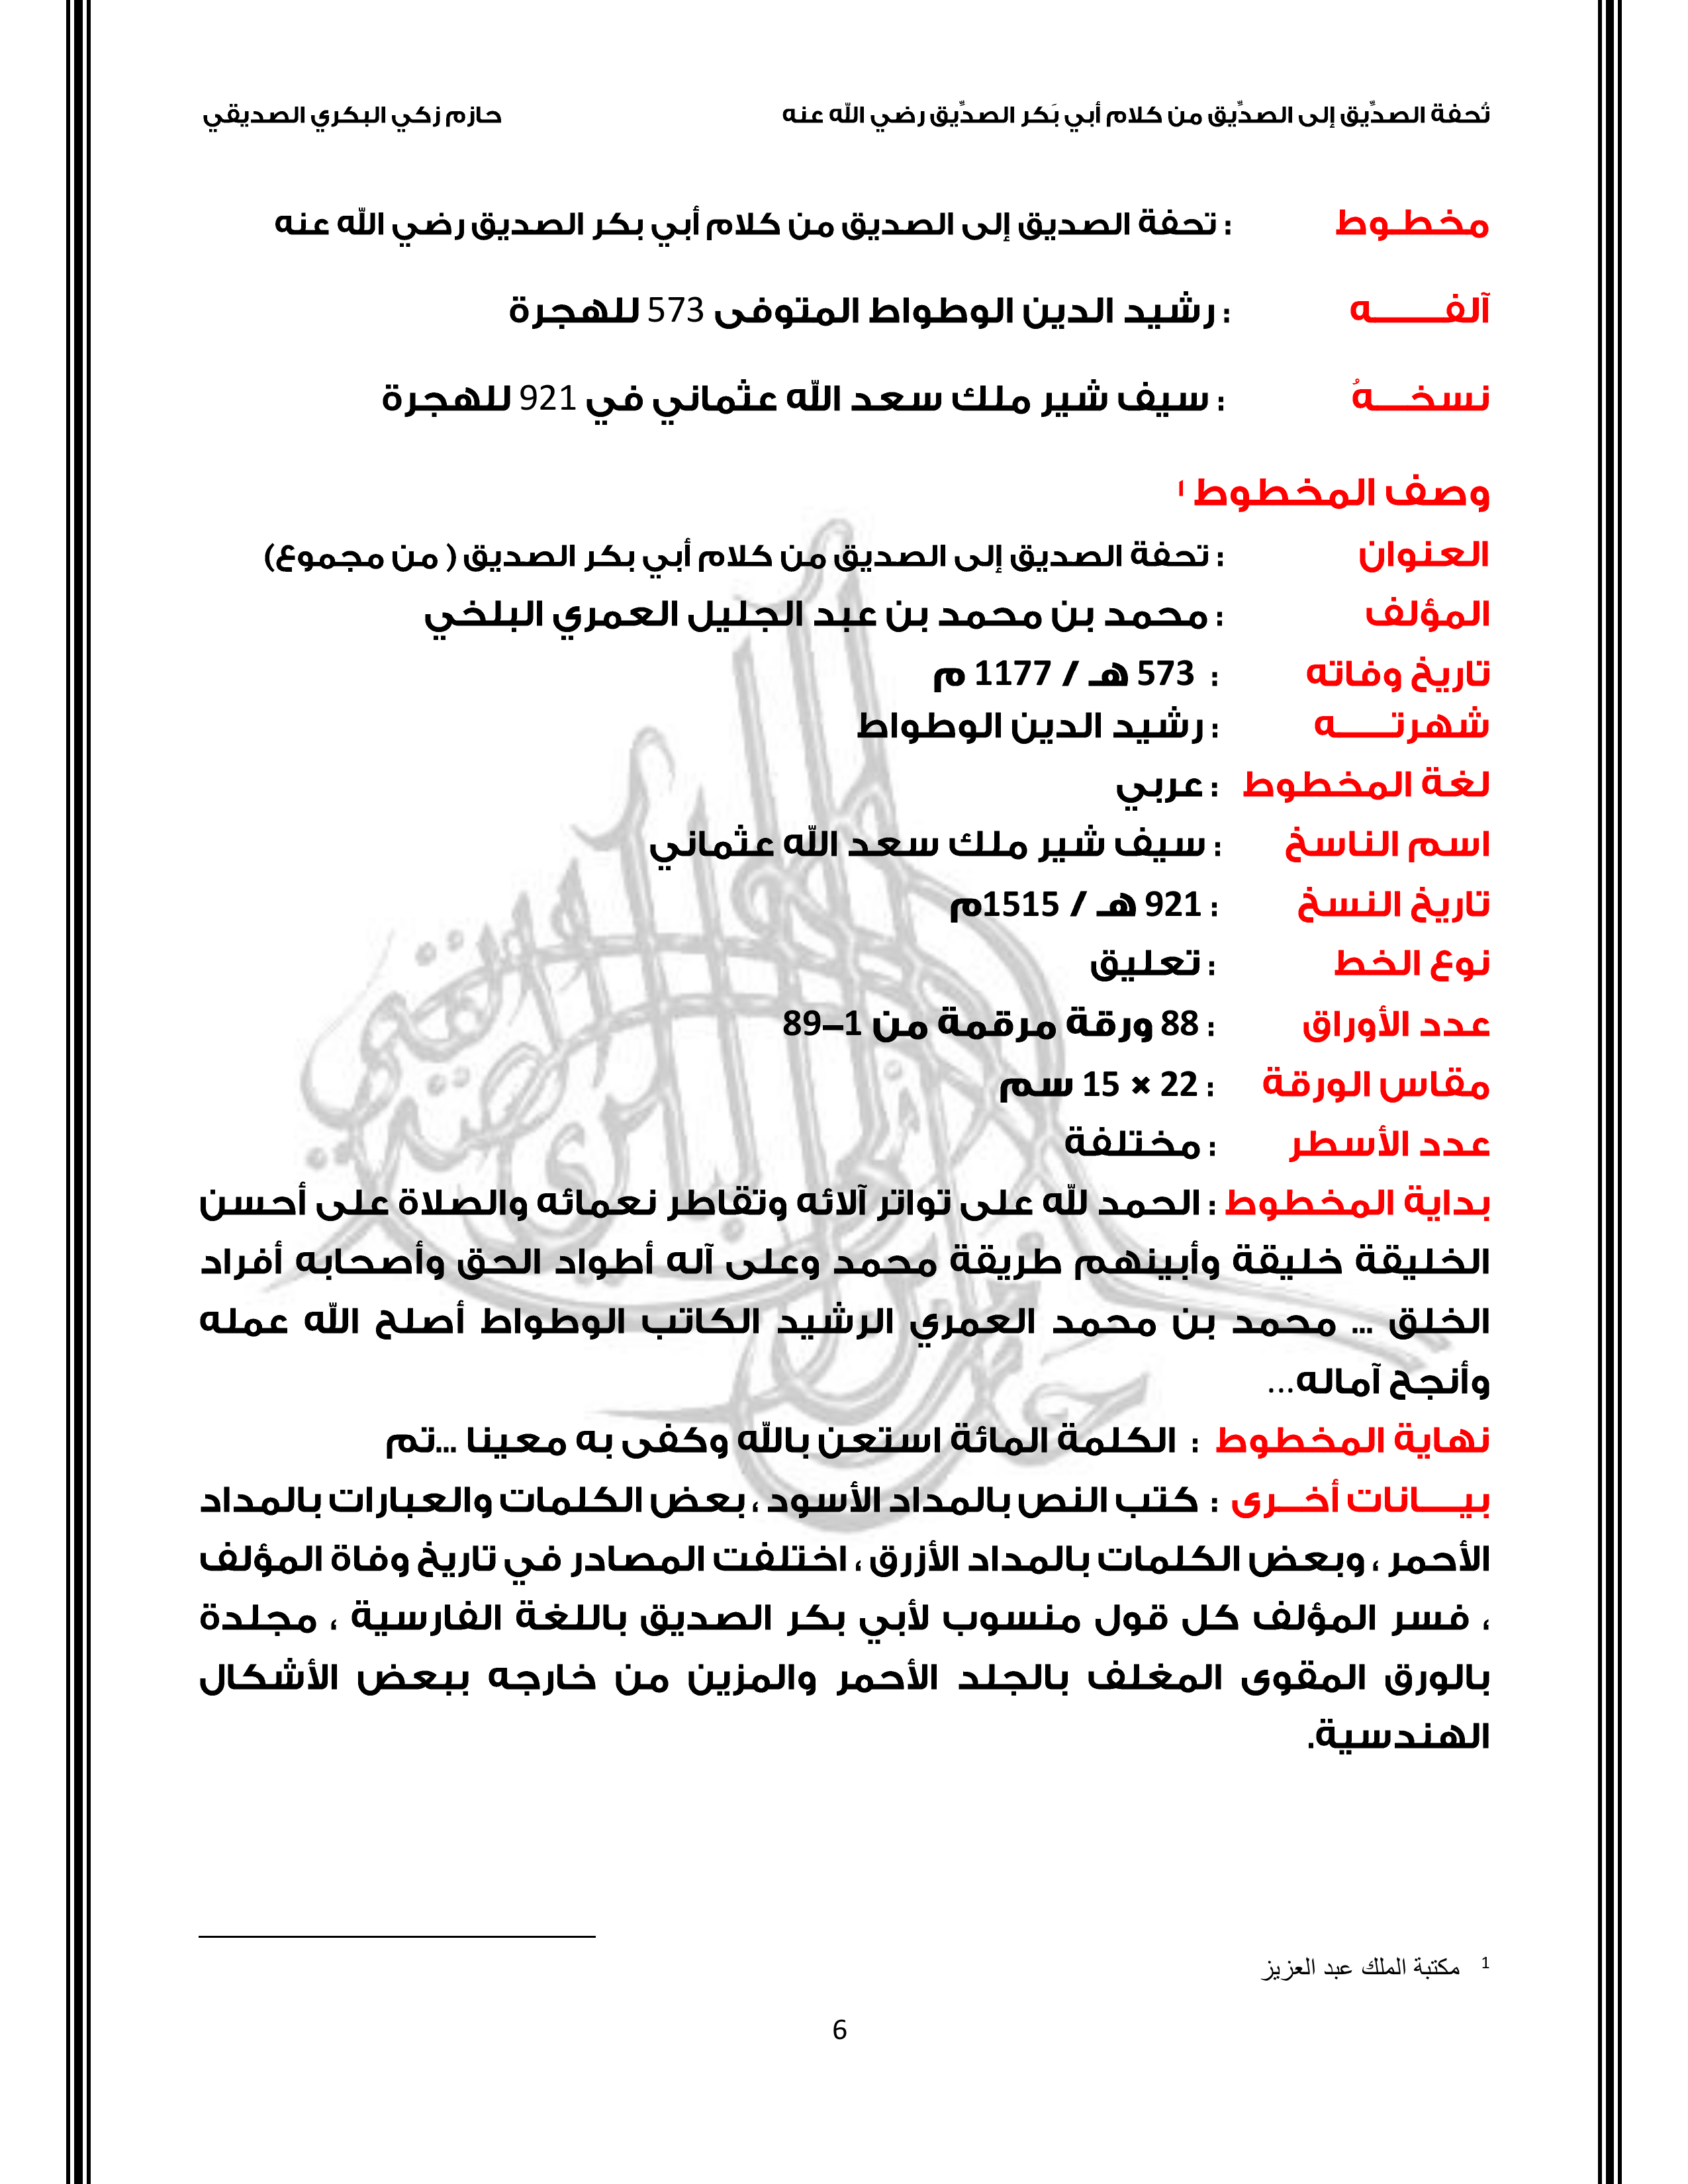 تُحفة الصدِّيق إلى الصدِّيق من كلام أبي بَكر الصدِّيق رضي الله عنه حازم زكي البكري الصديقي
مخطـوط : تحفة الصديق إلى الصديق من كلام أبي بكر الصديق رضي الله عنه
آلفـــــــه : رشيد الدين الوطواط المتوفى 573 للهجرة
نسخــــهُ : سيف شير ملك سعد الله عثماني في 921 للهجرة
وصف المخطوط ١
العنوان : تحفة الصديق إلى الصديق من كلام أبي بكر الصديق ( من مجموع)
المؤلف : محمد بن محمد بن عبد الجليل العمري البلخي
تاريخ وفاته : 573 هـ / 1177 م
شهرتـــــه : رشيد الدين الوطواط
لغة المخطوط : عربي
اسم الناسخ : سيف شير ملك سعد الله عثماني
تاريخ النسخ : 921 هـ / 1515م
نوع الخط : تعليق
عدد الأوراق : 88 ورقة مرقمة من 1–89
مقاس الورقة : 22 × 15 سم
عدد الأسطر : مختلفة
بداية المخطوط : الحمد لله على تواتر آلائه وتقاطر نعمائه والصلاة على أحسن
الخليقة خليقة وأبينهم طريقة محمد وعلى آله أطواد الحق وأصحابه أفراد
الخلق ... محمد بن محمد العمري الرشيد الكاتب الوطواط أصلح الله عمله
وأنجح آماله...
نهاية المخطوط : الكلمة المائة استعن بالله وكفى به معينا ...تم
بيــــانات أخـــرى : كتب النص بالمداد الأسود ، بعض الكلمات والعبارات بالمداد
الأحمر ، وبعض الكلمات بالمداد الأزرق ، اختلفت المصادر في تاريخ وفاة المؤلف
، فسر المؤلف كل قول منسوب لأبي بكر الصديق باللغة الفارسية ، مجلدة
بالورق المقوى المغلف بالجلد الأحمر والمزين من خارجه ببعض الأشكال
الهندسية.
1 مكتبة الملك عبد العزيز
6